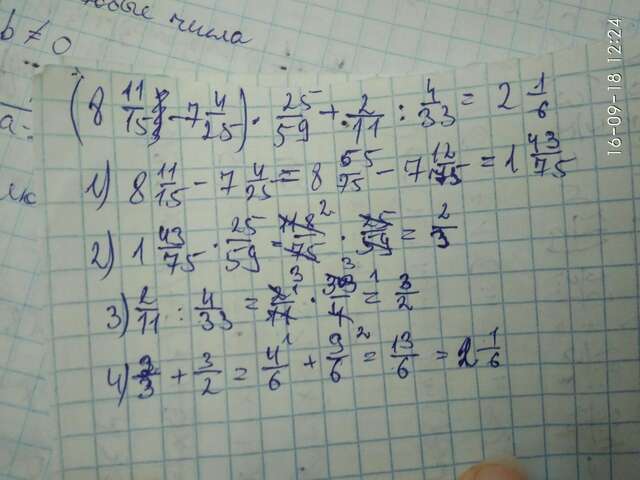 новые числа
b ≠ 0
(8 11/15 - 7 4/25) · 25/59 + 2/11 : 4/33 = 2 1/6
a
1) 8 11/15 - 7 4/25 = 8 55/75 - 7 12/75 = 1 43/75
2) 1 43/75 · 25/59 = 118/75 · 25/59 = 2/3
3) 2/11 : 4/33 = 2/11 · 33/4 = 3/2
4) 2/3 + 3/2 = 4/6 + 9/6 = 13/6 = 2 1/6
16-09-18 12:24